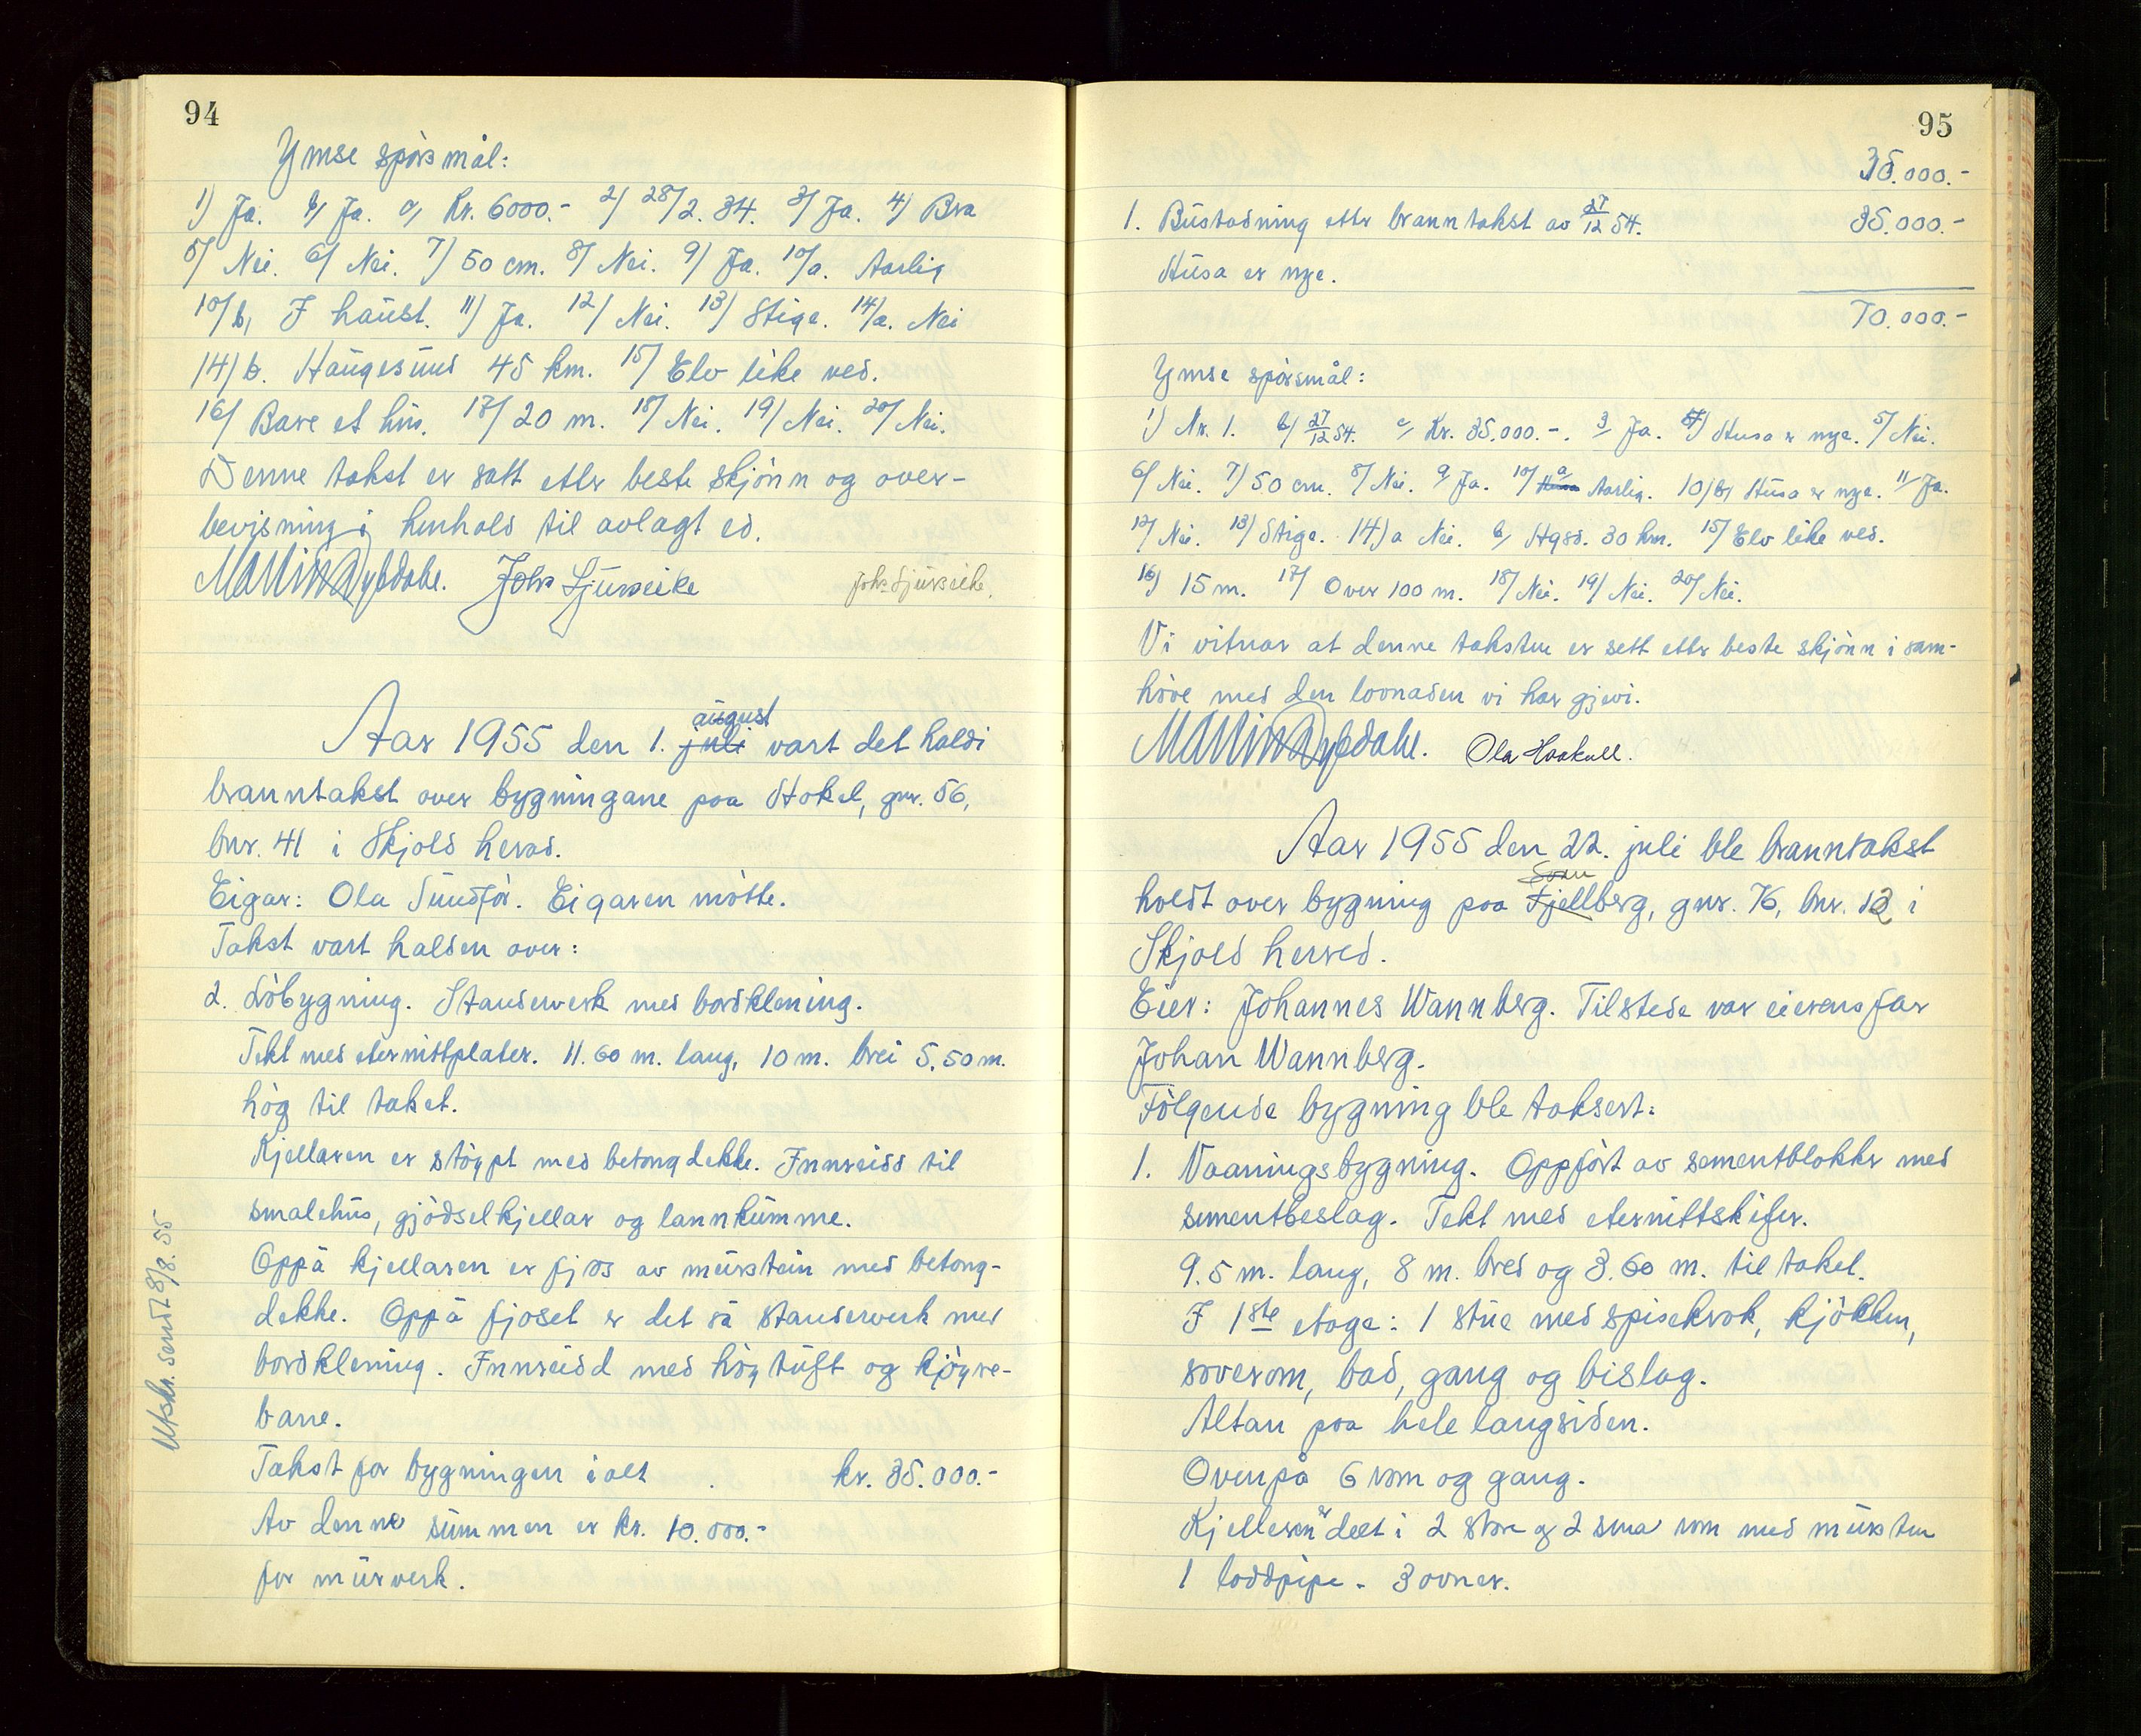 94
Ymse spørsmål:
1) Ja. b, Ja. c, Kr. 6000.- 2/ 28/2. 34. 3/ Ja. 4) Bra
5/ Nei. 6/ Nei. 7/ 50 cm. 8/ Nei. 9/ Ja. 10/a. Aarlig
10/b, I haust. 11/ Ja. 12/ Nei. 13/ Stige. 14/a. Nei
14/b. Haugesund 45 km. 15/ Elv like ved.
16/ Bare et hus. 17/ 20 m. 18/ Nei. 19/ Nei. 20/ Nei.
Denne takst er satt etter beste skjønn og over-
bevisning i henhold til avlagt ed.
Johs Sjurseike Johs Sjurseike.
Aar 1955 den 1. juli august vart det haldi
branntakst over bygningane paa Stakel, gnr. 56,
bnr. 41 i Skjold herad.
Eigar: Ola Sundfør. Eigaren møtte.
Takst vart halden over:
2. Løbygning. Standerverk med bordklening.
Tekt med eternittplater. 11.60 m. lang, 10 m. brei 5.50 m.
høg til taket.
Kjellaren er støypt med betongdekke. Innreidd til
smalehus, gjødselkjellar og lannkumme.
Oppå kjellaren er fjøs av murstein med betong-
dekke. Oppå fjøset er det så standerverk med
bordklening. Innreidd med høytuft og kjøyre-
bane.
Takst for bygningen i alt . kr. 35.000.-
Av denne summen er kr. 10.000.-
for murverk.
Utskr. sendt 8/8. 55
95
35.000.-
1. Bustadning etter branntakst av 27/12 54. 35.000.-
Husa er nye.
70.000.-
Ymse spørsmål:
1) Nr. 1. b/ 27/12 54. c, Kr. 35.000.-. 3/ Ja. 4) Husa er nye. 5/ Nei.
6/ Nei. 7/ 50 cm. 8/ Nei. 9/ Ja. 10/ Husa a Aarlig. 10/b, Husa er nye. 11/ Ja.
12/ Nei. 13/ Stige. 14)a Nei. b, Hgsd. 30 km. 15/ Elv like ved.
16) 15 m. 17/ Over 100 m. 18/ Nei. 19/ Nei. 20/ Nei.
Vi vitnar at denne taksten er sett etter beste skjønn i sam-
høve med den lovnaden vi har gjevi.
Ola Haakull.
Aar 1955 den 22. juli ble branntakst
holdt over bygning paa Fjellberg, Svan gnr. 76, bnr. 12 i
Skjold herred.
Eier: Johannes Wannberg. Tilstede var eierens far
Johan Wannberg.
Følgende bygning ble taksert:
1. Vaaningsbygning. Oppført av sementblokker med
sementbeslag. Tekt med eternittskifer.
9.5 m. lang, 8 m. bred og 3.60 m. til taket.
I 1ste etage: 1 stue med spisekrok, kjøkken,
soverom, bad, gang og bislag.
Altan paa hele langsiden.
Ovenpå 6 rom og gang.
Kjelleren er delt i 2 store og 2 små rom med murstein
1 loddpipe. 3 ovner.